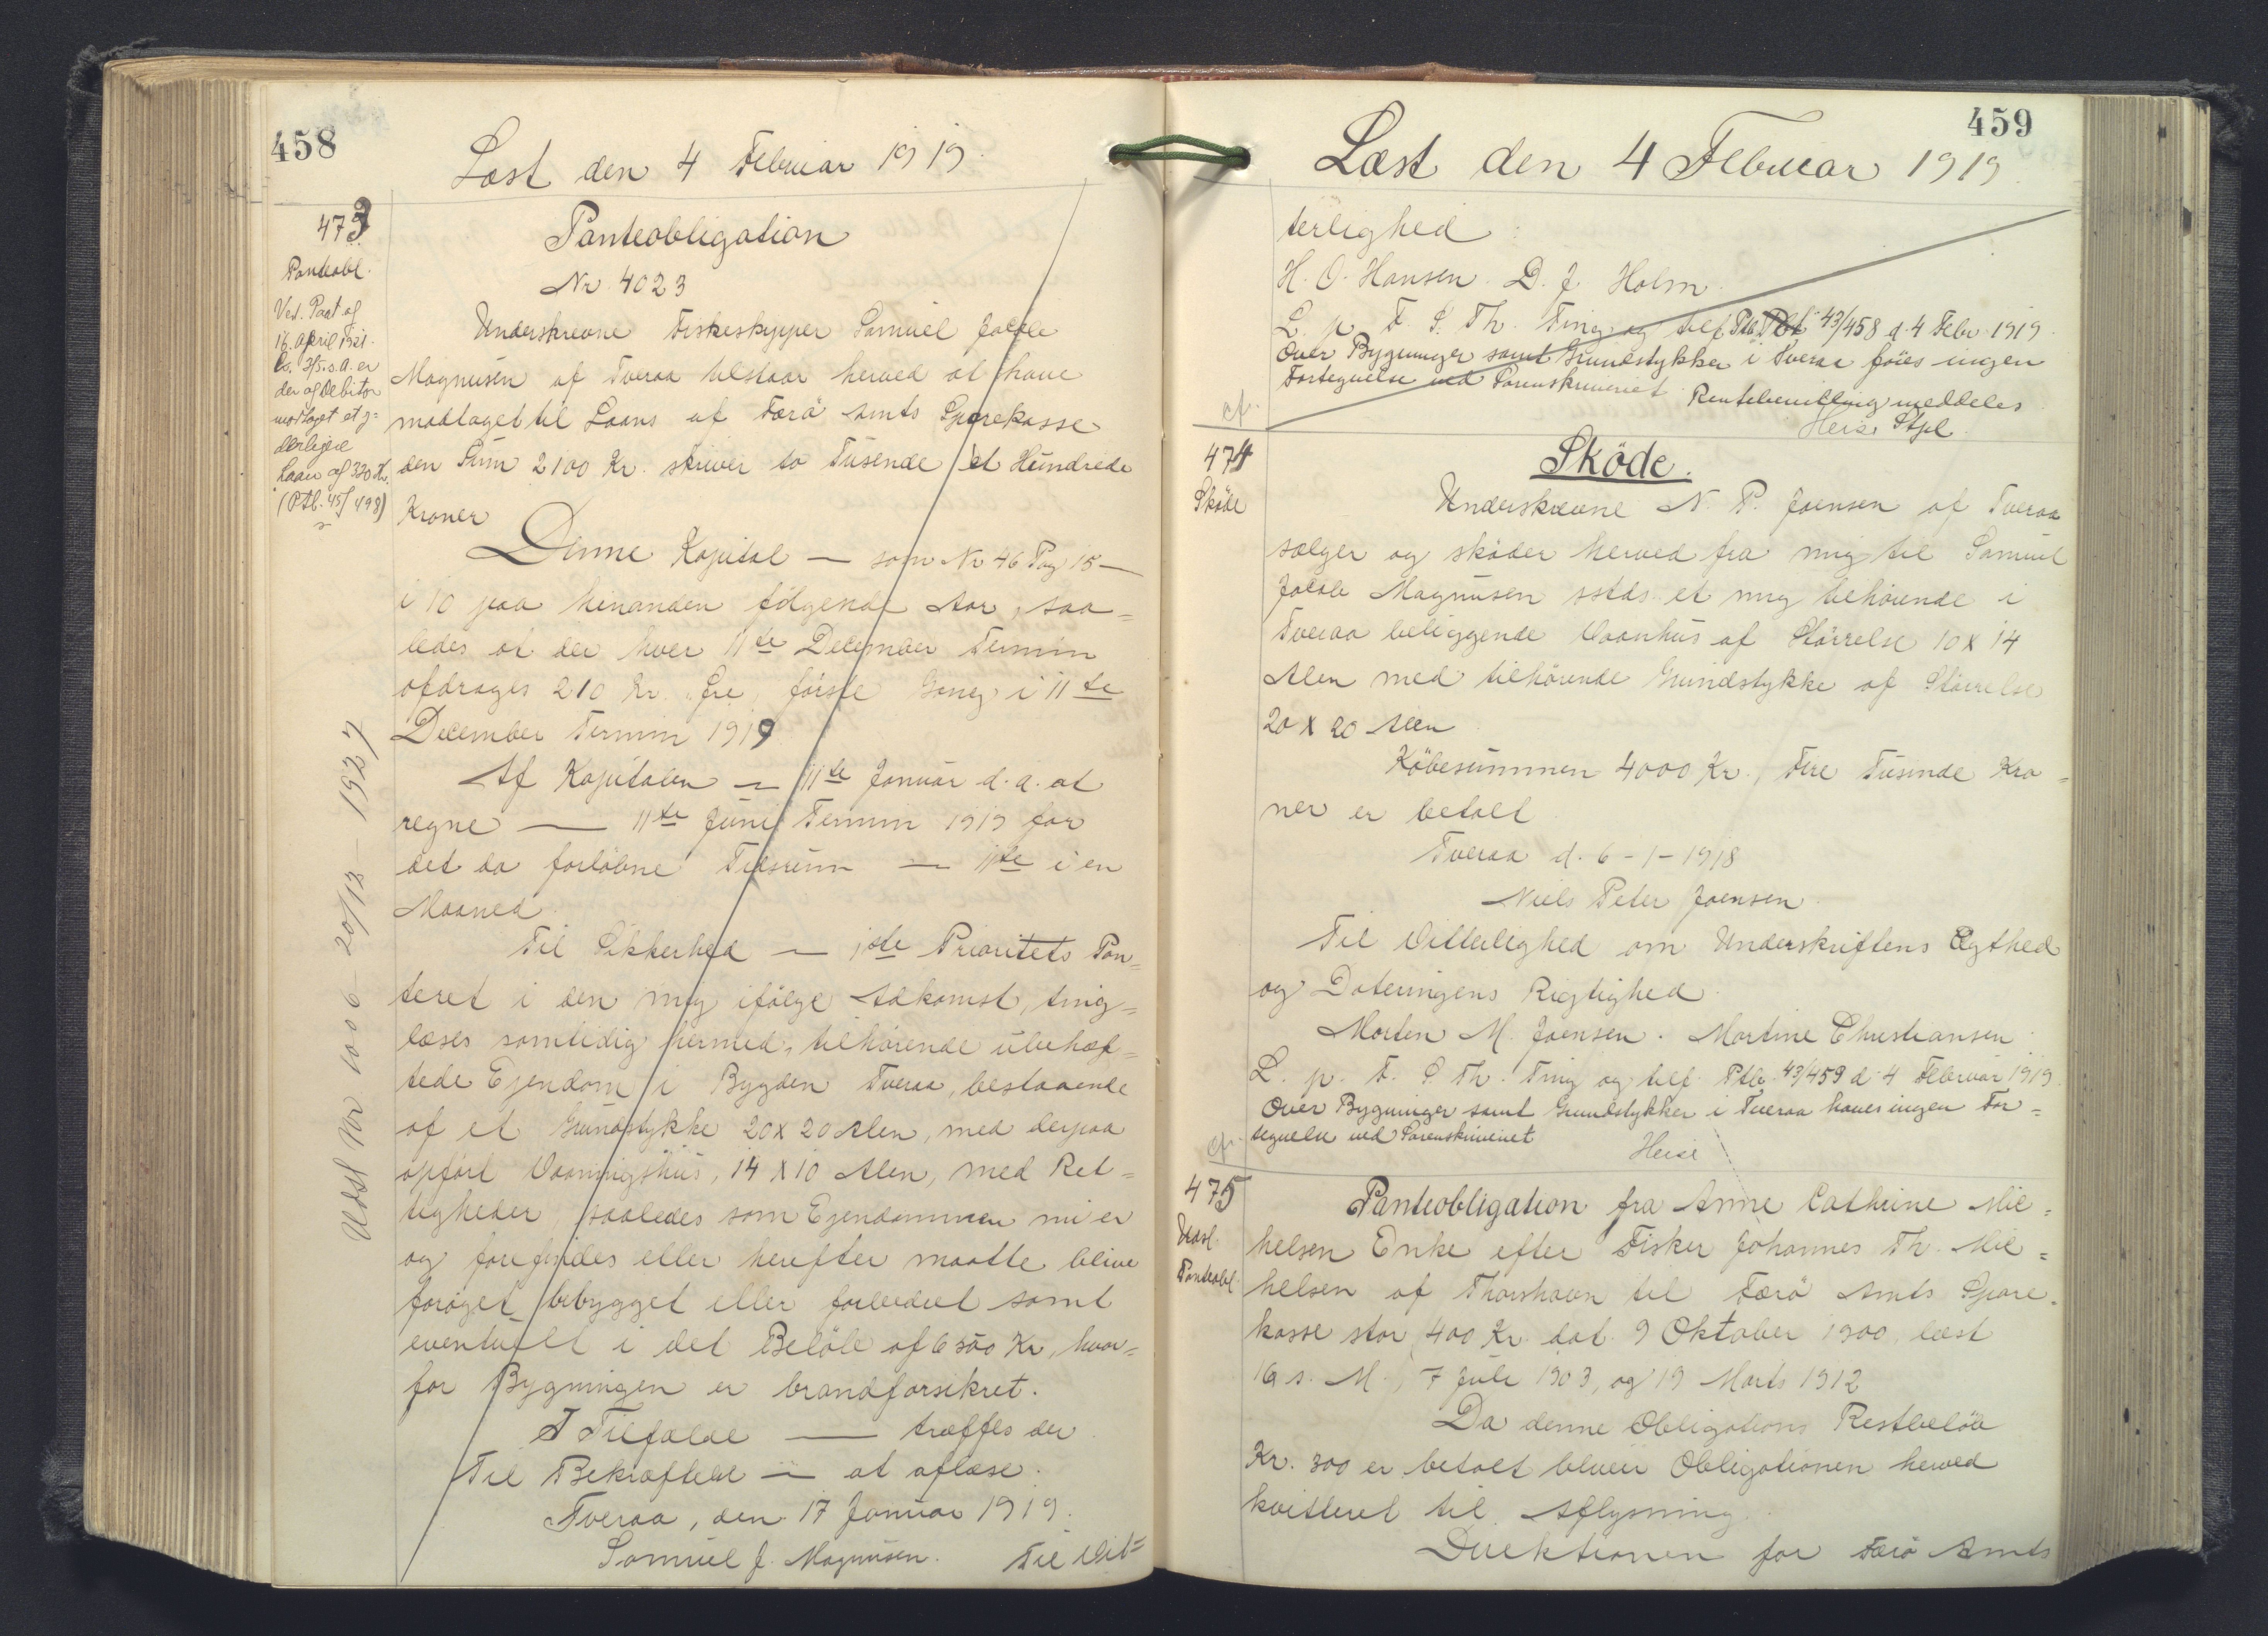 458
Læst den 4 Februar 1919.
473
Panteobl.
Ved. Paat af
16. April 1921.
ls. 3/5. s.A. er
der af Debitor
modtaget et y=
derligere
Laan af 320 Kr.
(Ptb. 45/498)
Udsl No 1006 20/12 - 1927
Panteobligation
Nr. 4023
Underskrevne Fiskeskipper Samuel Jacob
Magnusen af Tveraa tilstaar herved at have
modtaget til Laans af Færø Amts Sparekasse
den Sum 2100 Kr. skriver to Tusende et Hundrede
Kroner
Denne Kapital — som Nr 46 Pag 15 —
i 10 paa hinanden følgende Aar, saa=
ledes at der hver 11te December Termin
afdrages 210 Kr. første Gang i 11te
December Termin 1919
Af Kapitalen — 11te Januar d.a. at
regne — 11te Juni Termin 1919 for
det da forløbne Tidsrum — 11te i en
Maaned.
Til Sikkerhed — 1ste Prioritets Pan=
teret i den mig ifølge Adkomst, ting=
læses samtidig hermed, tilhørende ubehæf=
tede Ejendom i Bygden Tveraa, bestaaende
af et Grundstykke 20 x 20 Alen, med derpaa
opført Vaaningshus, 14 x 10 Alen, med Ret=
tigheder, saaledes som Ejendommen nu er
og forefindes eller herefter maatte blive
forøget, bebygget eller forbedret samt
eventuelt i det Beløb af 6300 Kr, hvor=
for Bygningen er brandforsikret.
I Tilfælde — træffes der
Til Bekræftelse — at aflæse.
Tveraa, den 17 Januar 1919.
Samuel J. Magnusen. Til Vit=
459
Læst den 4 Februar 1919
terlighed:
H. O. Hansen. D. J. Holm.
L. p. F. S. Th. Ting og tilf. Ptb. 43/458 d. 4 Febr. 1919.
Over Bygninger samt Grundstykker i Tveraa føres ingen
Fortegnelse ved Sorenskriveriet Rentebevilling meddeles
cfr.
Heise Stpl.
474
Sköde
Sköde.
Underskrevne N. P. Joensen af Tveraa
sælger og skøder herved fra mig til Samuel
Jacob Magnusen sstds. et mig tilhørende i
Tveraa beliggende Vaanhus af Størrelse 10 x 14
Alen med tilhørende Grundstykke af Størrelse
20 x 20 Alen
Købesummen 4000 Kr., Fire Tusinde Kro=
ner er betalt
Tveraa d. 6-1-1918
Niels Peter Joensen.
Til Vitterlighed om Underskriftens Ægthed
og Dateringens Rigtighed.
Morten M. Joensen. Martine Christiansen
L. p. F. S Th. Ting og tilf. Ptb. 43/459 d. 4 Februar 1919.
Over Bygninger samt Grundstykker i Tveraa haves ingen For=
tegnelse ved Sorenskriveriet
cfr.
Heise
475
Udsl.
Panteobl.
Panteobligation fra Anne Cathrine Mic=
helsen Enke efter Fisker Johannes Th. Mic=
helsen af Thorshavn til Færø Amts Spare=
kasse stor 400 Kr. dat. 9 Oktober 1900, læst
16 s. M., 7 Juli 1903, og 19 Marts 1912
Da denne Obligations Restbeløb
Kr. 300 er betalt bliver Obligationen herved
kvitteret til Aflysning.
Direktionen for Færø Amts